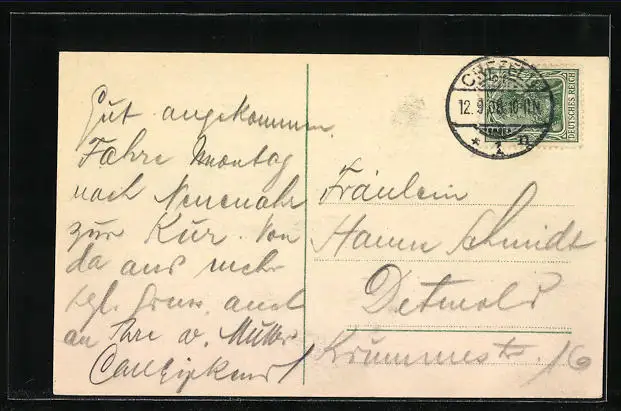 Gut angekommen.
Fahre Montag
nach Neuenahr
zur Kur. Von
da aus mehr
hzl. Gruss, auch
an Ihre v. Mutter
CREFELD
12.9.08.10-11N.
* 1 n
DEUTSCHES REICH
Fräulein
Hanna Schmidt
Detmold
Krummestr. 16